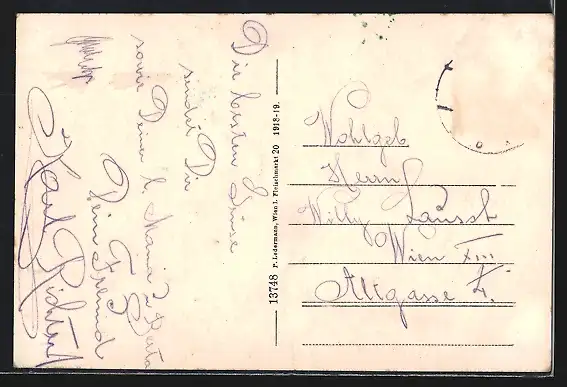 Die besten Grüsse
sendet Dir
sowie Deiner l. Mama u. Berta
Dein Freund
Karl Richter
13748 P. Ledermann, Wien I. Fleischmarkt 20 1918-19.
Wohlgeb
Herrn
Willy Lausch
Wien XIII
Altgasse